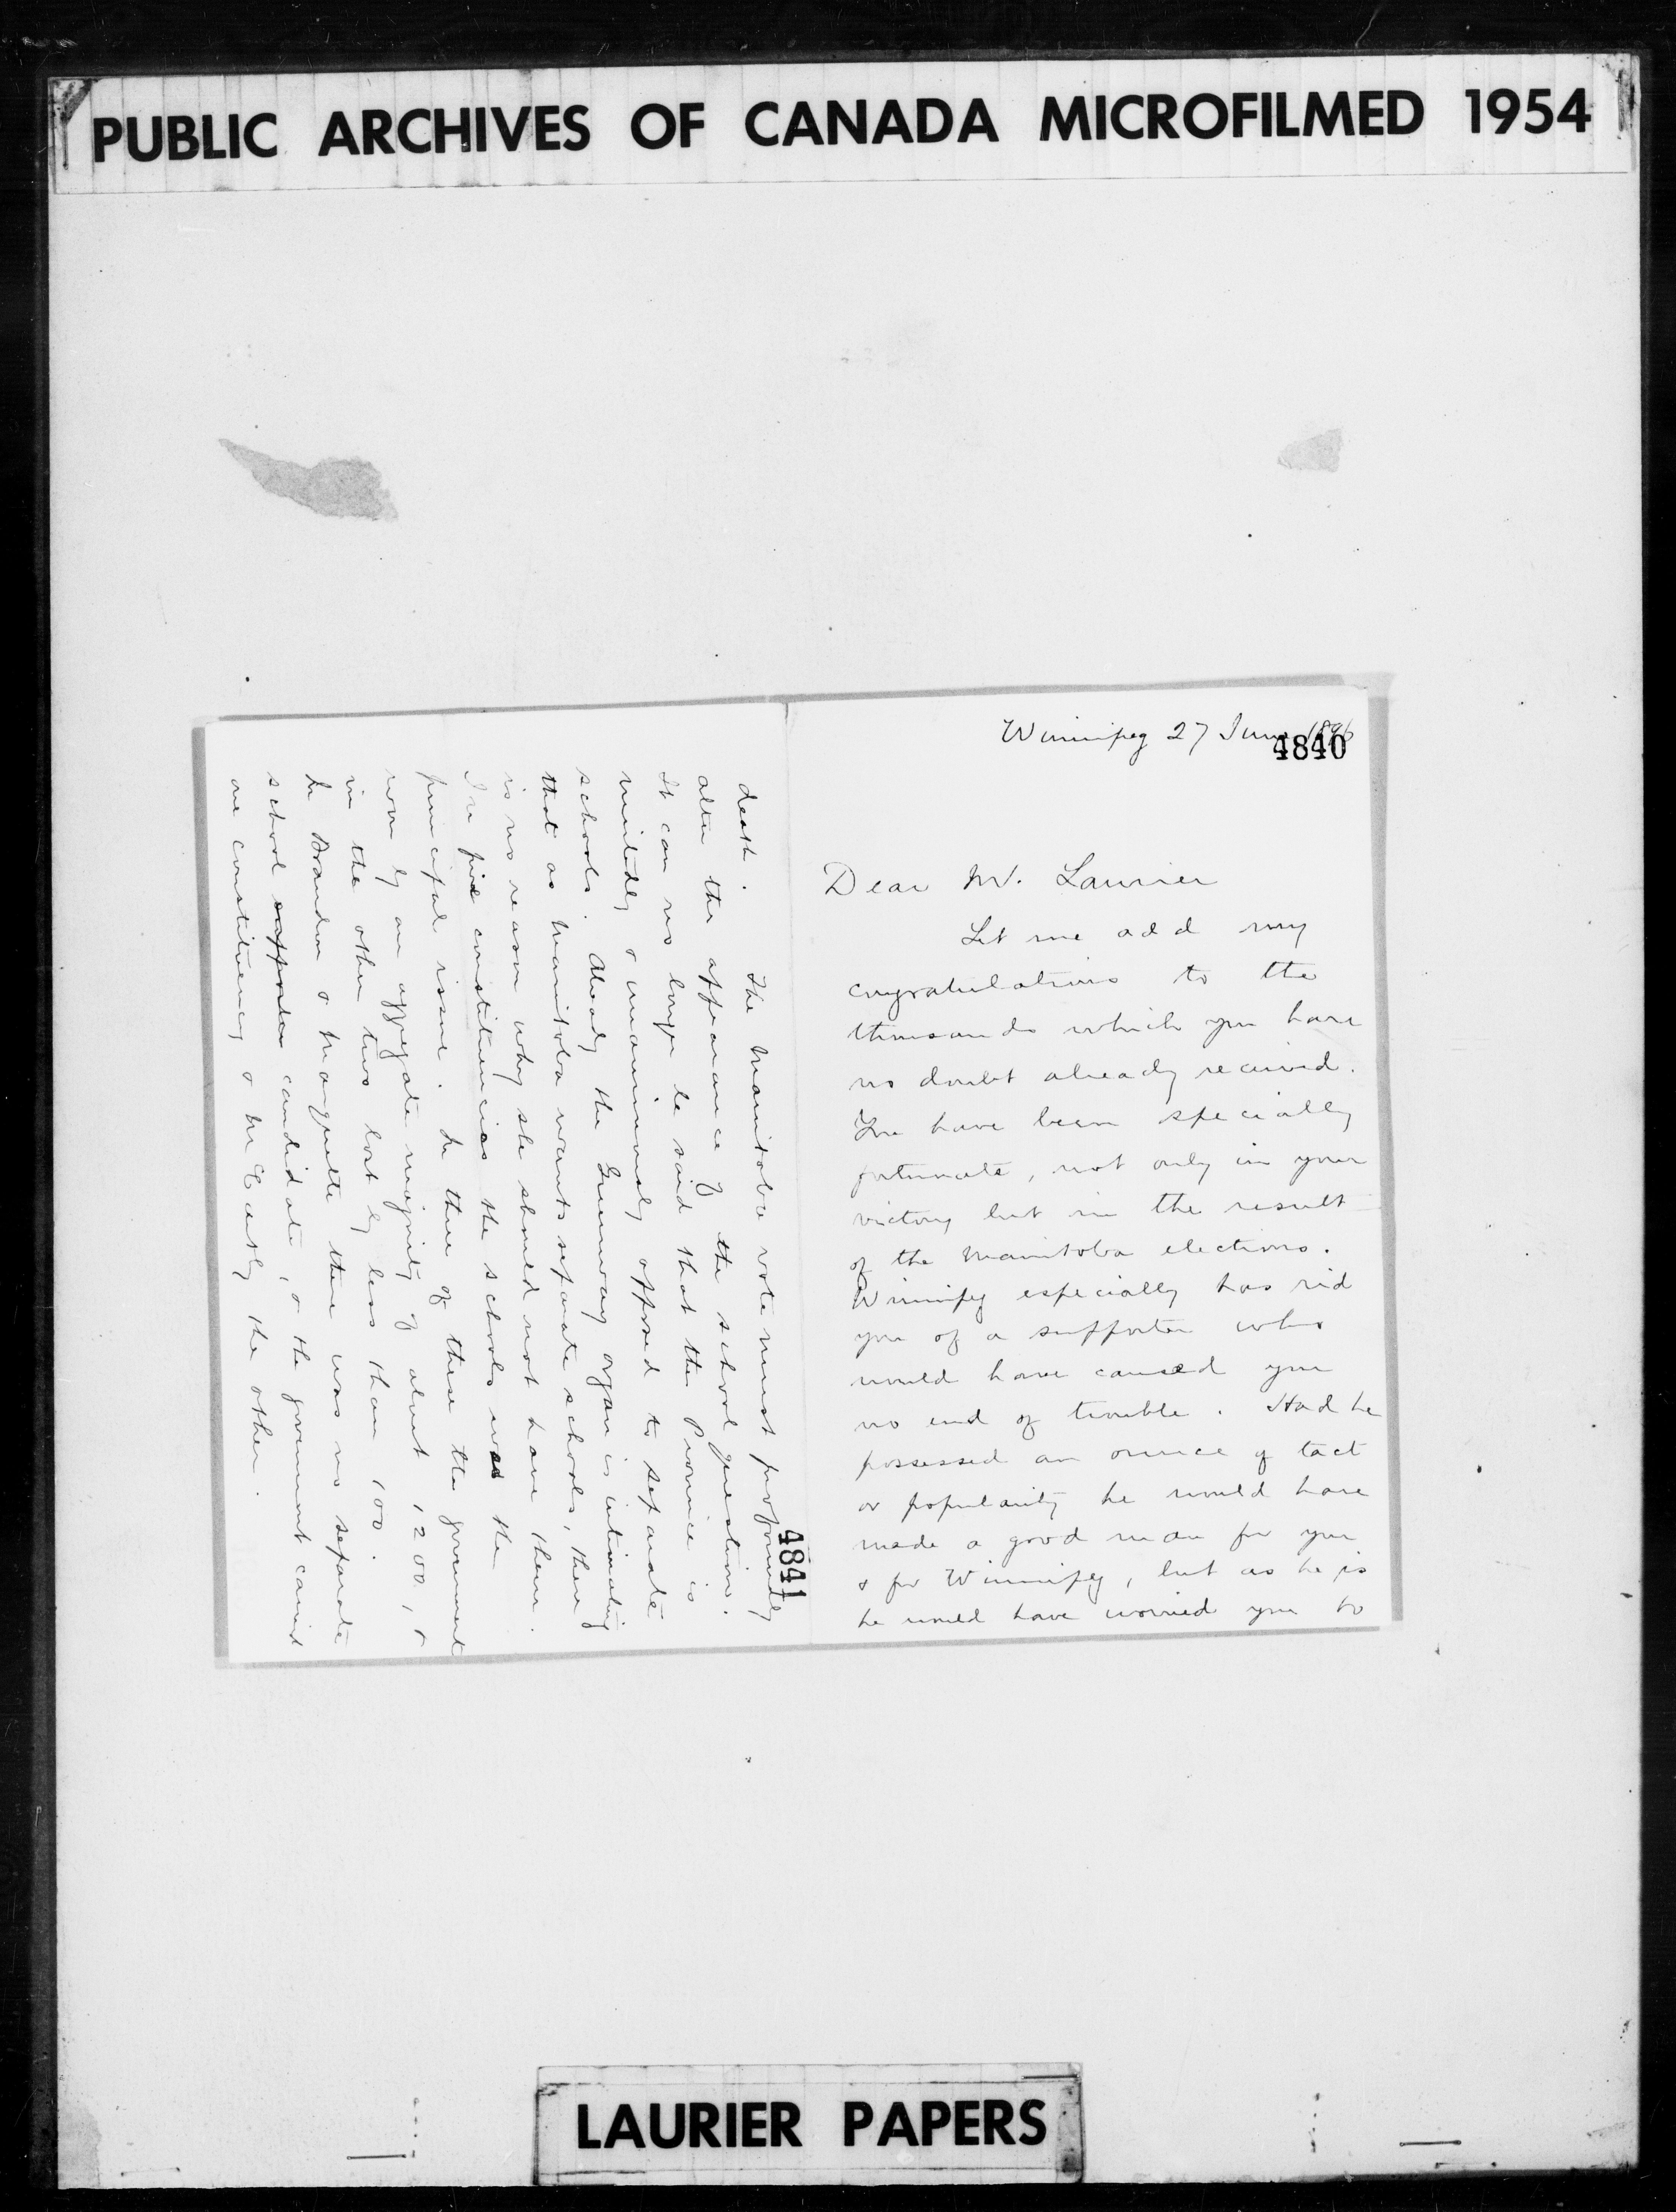 PUBLIC ARCHIVES OF CANADA MICROFILMED 1954
Winnipeg 27 June 1896
4840
Dear Mr. Laurier
Let me add my
congratulations to the
thousands which you have
no doubt already received.
You have been specially
fortunate, not only in your
victory but in the result
of the Manitoba elections.
Winnipeg especially has rid
you of a supporter who
would have caused you
no end of trouble. Had he
possessed an ounce of tact
or popularity he would have
made a good man for you
& for Winnipeg, but as he is
he would have worried you to
4841
death. The Manitoba vote must profoundly
alter the appearance of the school question.
It can no longer be said that the Province is
unitedly & unanimously opposed to separate
schools. Already the Greenway organ is intimating
that as Manitoba wants separate schools, there
is no reason why she should not have them.
In five constituencies the schools was the
principal issue. In three of these the government
won by an aggregate majority of about 1200, &
in the other two lost by less than 100.
In Brandon & Marquette there was no separate
school supporter candidate, & the government carried
one constituency & McCarthy the other.
LAURIER PAPERS